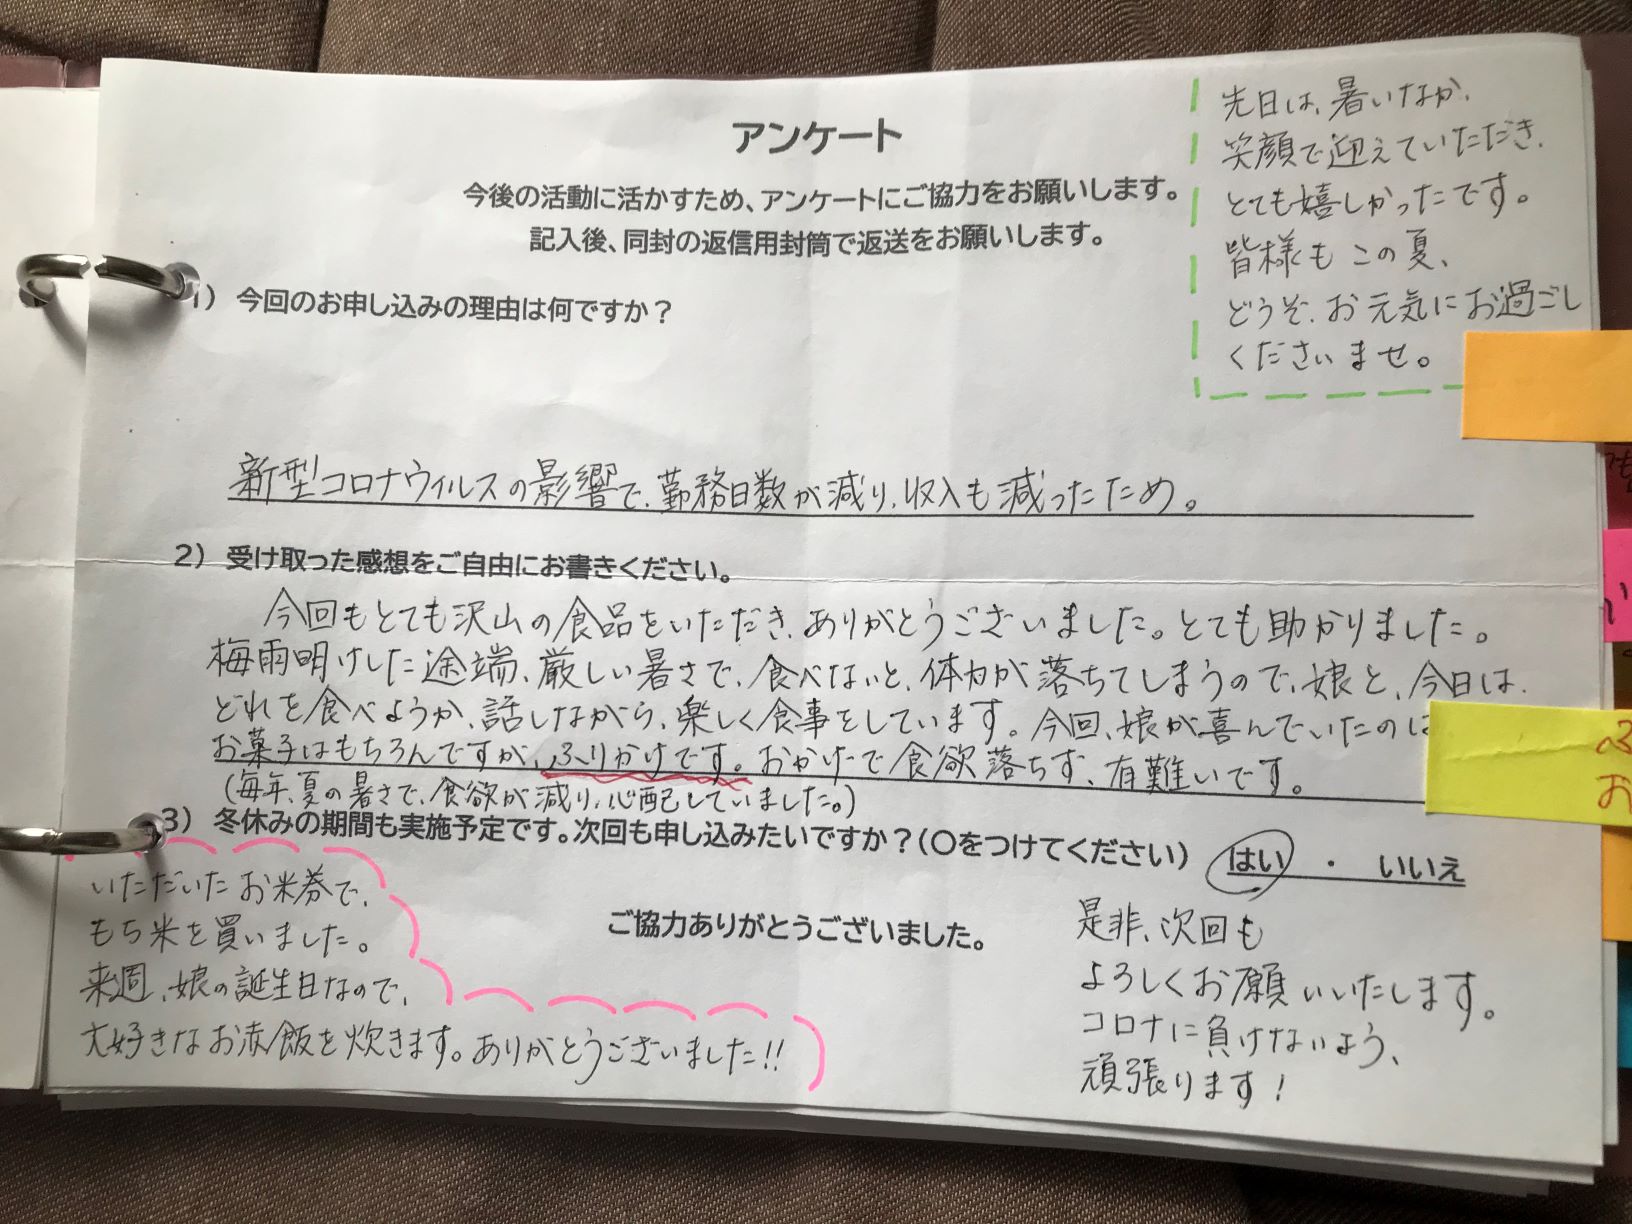 アンケート
今後の活動に活かすため、アンケートにご協力をお願いします。
記入後、同封の返信用封筒で返送をお願いします。
先日は、暑いなか、
笑顔で迎えていただき、
とても嬉しかったです。
皆様もこの夏、
どうぞ、お元気にお過ごし
くださいませ。
1) 今回のお申し込みの理由は何ですか？
新型コロナウィルスの影響で、勤務日数が減り、収入も減ったため。
2) 受け取った感想をご自由にお書きください。
今回もとても沢山の食品をいただき、ありがとうございました。とても助かりました。
梅雨明けした途端、厳しい暑さで、食べないと、体力が落ちてしまうので、娘と、今日は、
どれを食べようか、話しながら、楽しく食事をしています。今回、娘が喜んでいたのは
お菓子はもちろんですが、ふりかけです。おかげで食欲落ちず、有難いです。
(毎年、夏の暑さで、食欲が減り、心配していました。)
3) 冬休みの期間も実施予定です。次回も申し込みたいですか？(〇をつけてください) はい ・ いいえ
いただいたお米券で、
もち米を買いました。
来週、娘の誕生日なので、
大好きなお赤飯を炊きます。ありがとうございました!!
ご協力ありがとうございました。
是非、次回も
よろしくお願いいたします。
コロナに負けないよう、
頑張ります！
ふ
お